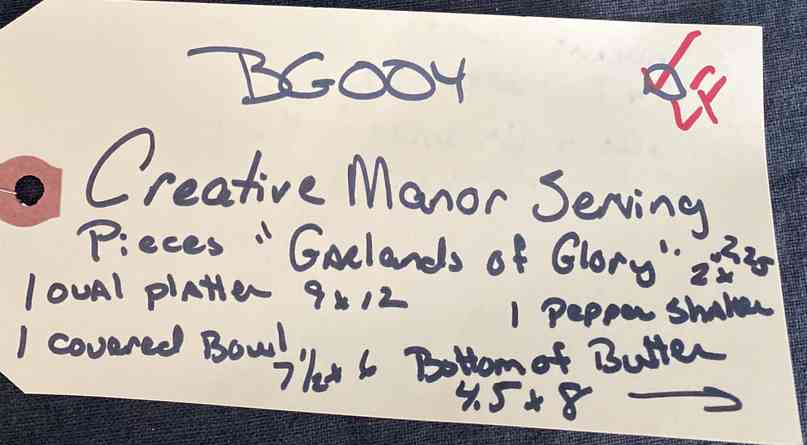 BG004
LF
Creative Manor Serving
Pieces "Garlands of Glory" 2" x 2.25
1 oval platter 9 x 12 1 pepper shaker
1 covered Bowl 7 1/2 x 6 Bottom of Butter
4.5 x 8 →